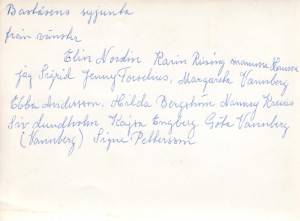 Baståsens syjunta
från vänster
Elin Nordin Karin Rising mamma Hanssa
jag Sigrid Jenny Forselius, Margareta Vannberg
Ebba Andersson. Hilda Bergström Nanny
Siv Lundholm Kajsa Engberg Göta Vannberg
(Vannberg) Signe Pettersson